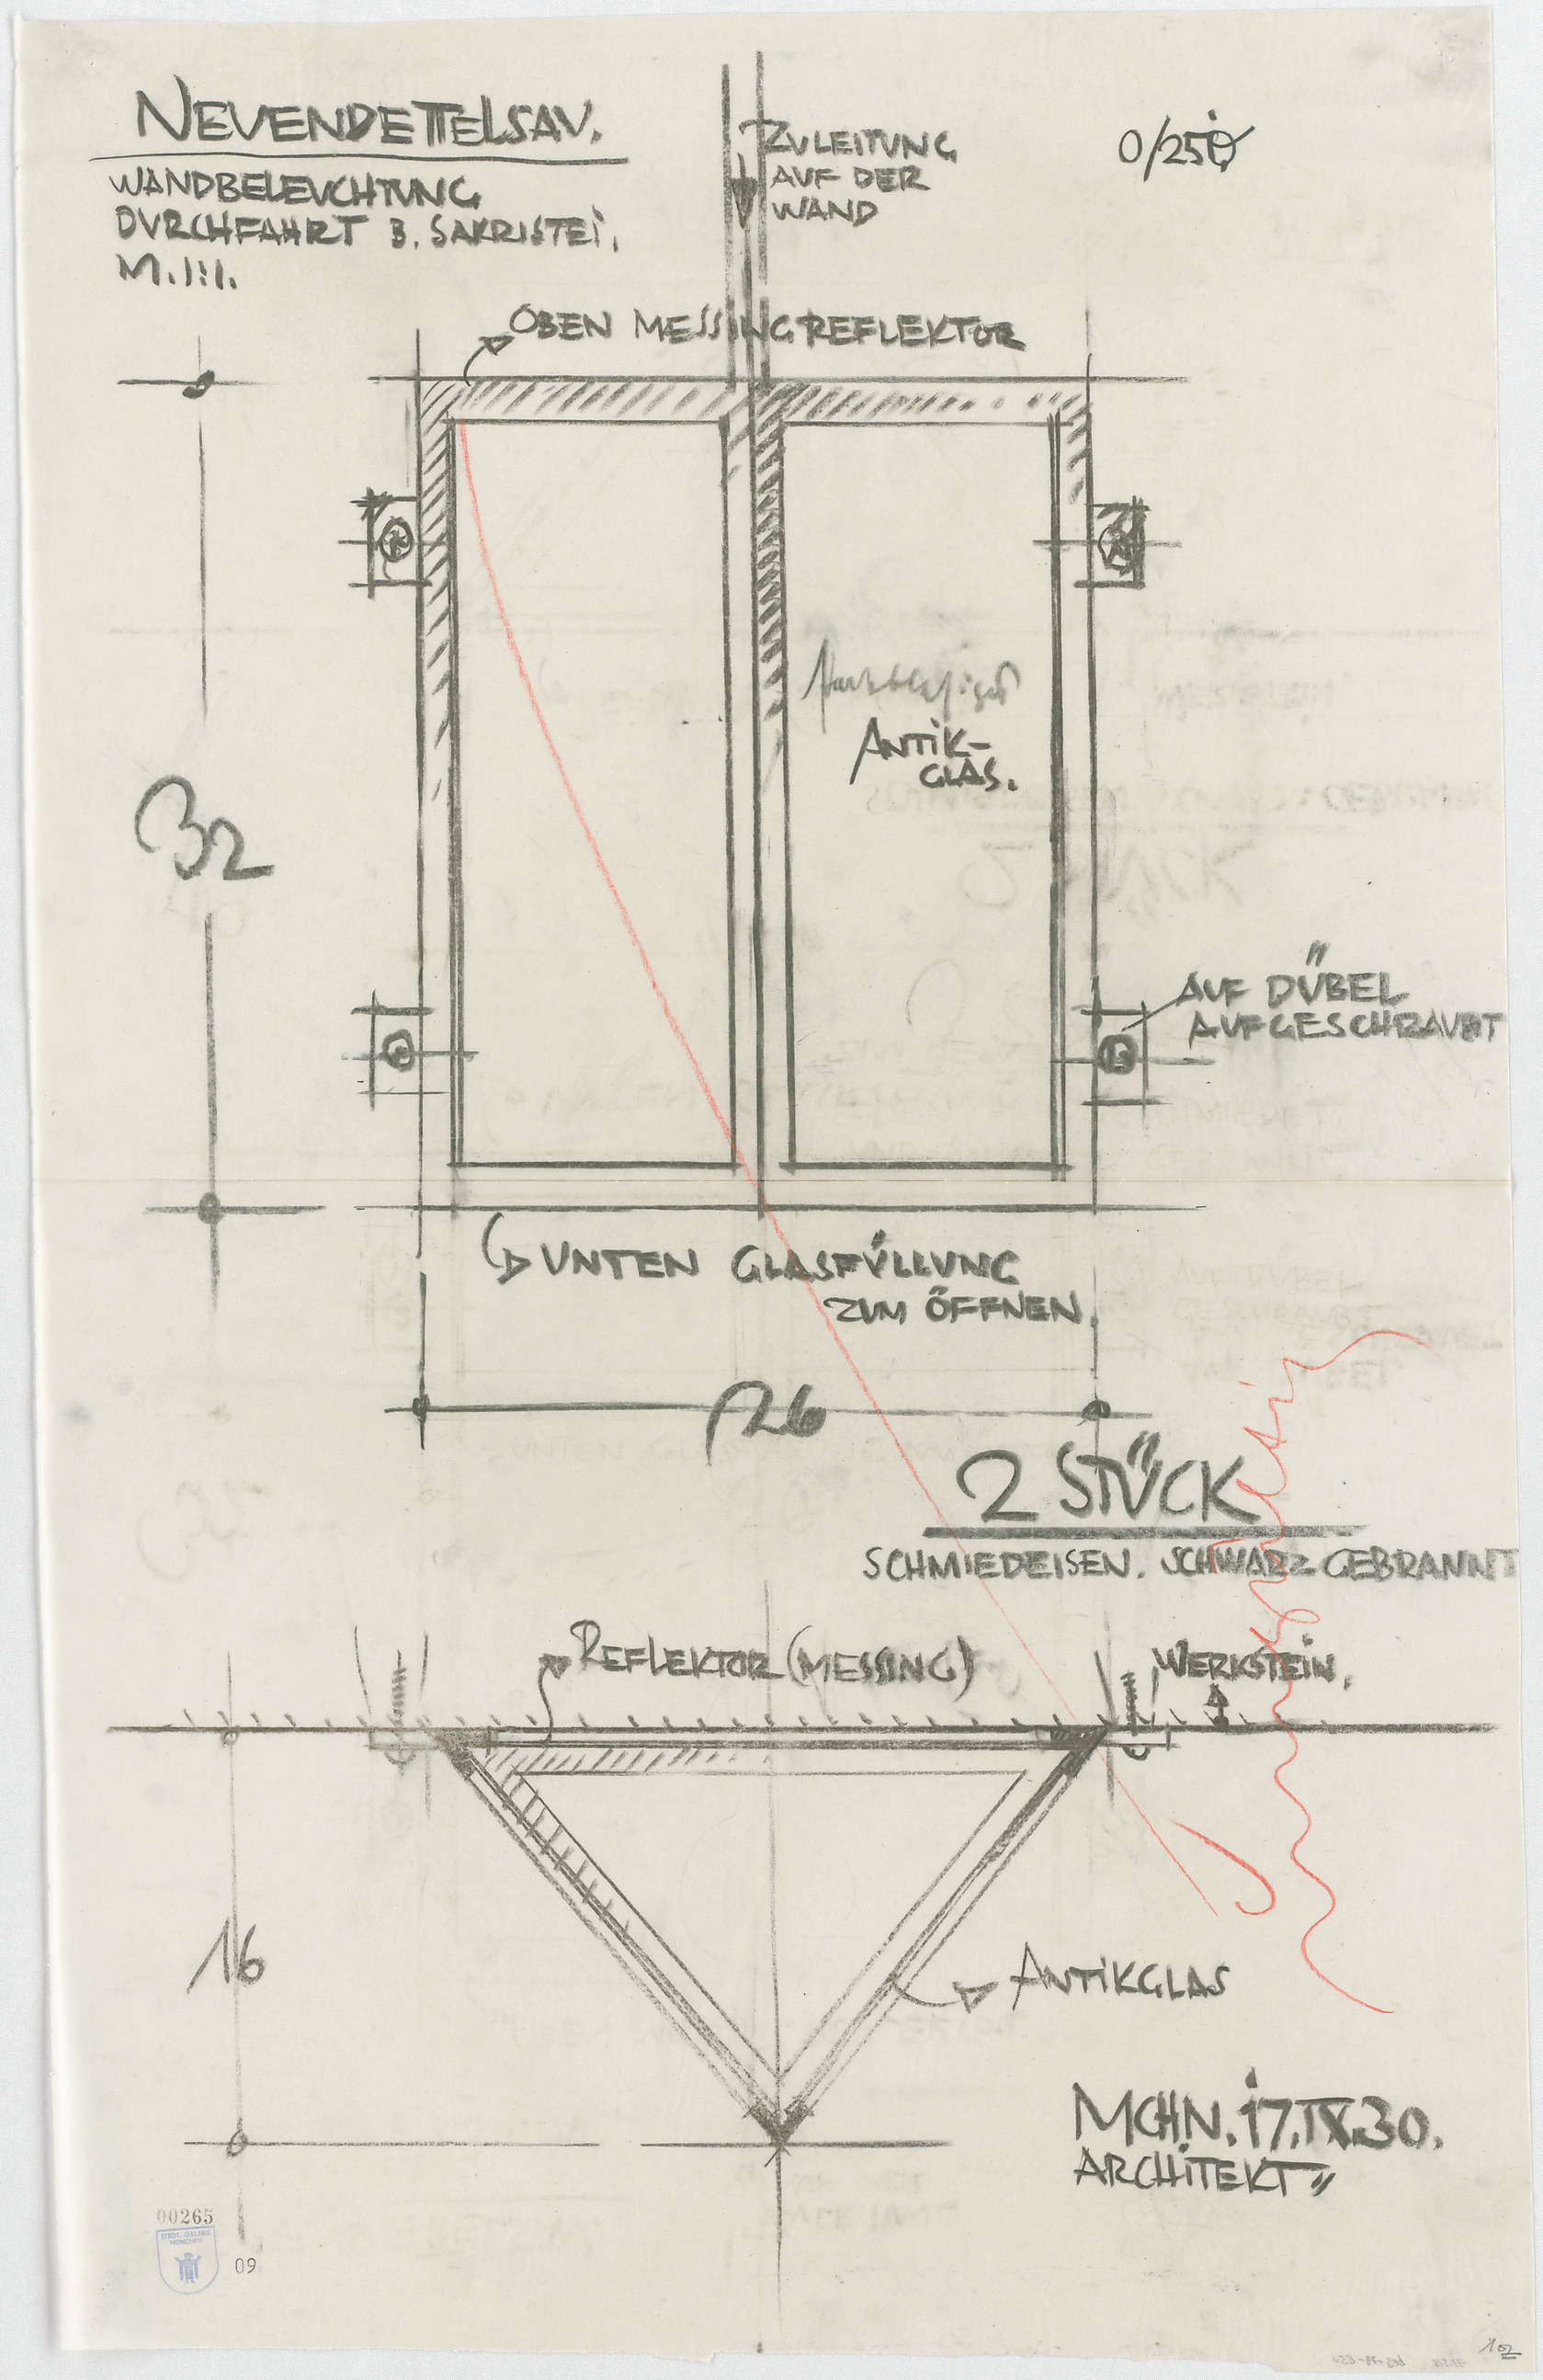 NEUENDETTELSAU.
WANDBELEUCHTUNG
DURCHFAHRT B. SAKRISTEI.
M. 1:1.
ZULEITUNG
AUF DER
WAND
0/250
OBEN MESSINGREFLEKTOR
ANTIK-
GLAS.
32
AUF DÜBEL
AUFGESCHRAUBT
UNTEN GLASFÜLLUNG
ZUM ÖFFNEN.
26
2 STÜCK
SCHMIEDEISEN. SCHWARZ GEBRANNT
REFLEKTOR (MESSING)
WERKSTEIN.
16
ANTIKGLAS
MCHN. 17.IX.30.
ARCHITEKT"
00265
STÄDT. GALERIE
MÜNCHEN
09
102